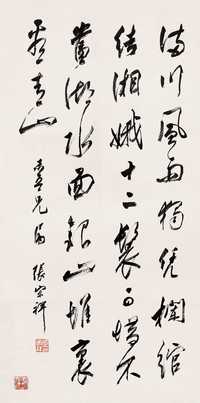 滿川風雨獨凭欄綰
結湘娥十二鬟可惜不
當湖水面銀山堆裏
看青山
兄屬 張宗祥